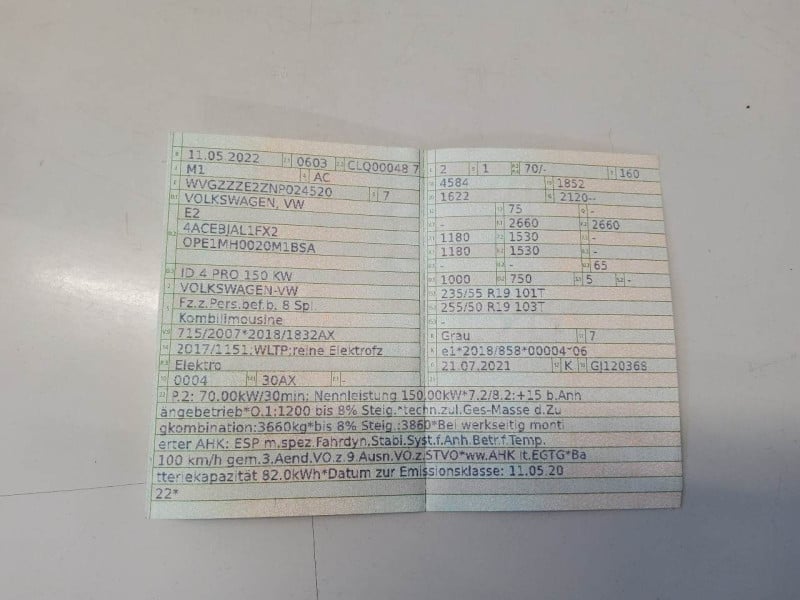 11.05.2022 0603 CLQ00048 7
M1 AC
WVGZZZE2ZNP024520 7
VOLKSWAGEN, VW
E2
4ACEBJAL1FX2
OPE1MH0020M1BSA
ID.4 PRO 150 KW
VOLKSWAGEN-VW
Fz.z.Pers.bef.b. 8 Spl.
Kombilimousine
715/2007*2018/1832AX
2017/1151;WLTP;reine Elektrofz
Elektro
0004 30AX -
2 1 70/- 160
4584 1852
1622 2120--
- 75 -
- 2660 2660
1180 1530 -
1180 1530 -
- - 65
1000 750 5 -
235/55 R19 101T
255/50 R19 103T
-
Grau 7
e1*2018/858*00004*06
21.07.2021 K GJ120368
P.2: 70.00kW/30min; Nennleistung 150.00kW*7.2/8.2:+15 b.Anh
ängebetrieb*O.1:1200 bis 8% Steig.*techn.zul.Ges-Masse d.Zu
gkombination:3660kg*bis 8% Steig.:3860*Bei werkseitig monti
erter AHK: ESP m.spez.Fahrdyn.Stabi.Syst.f.Anh.Betr.f.Temp.
100 km/h gem.3.Aend.VO.z.9.Ausn.VO.z.STVO*ww.AHK lt.EGTG*Ba
tteriekapazität 82.0kWh*Datum zur Emissionsklasse: 11.05.20
22*